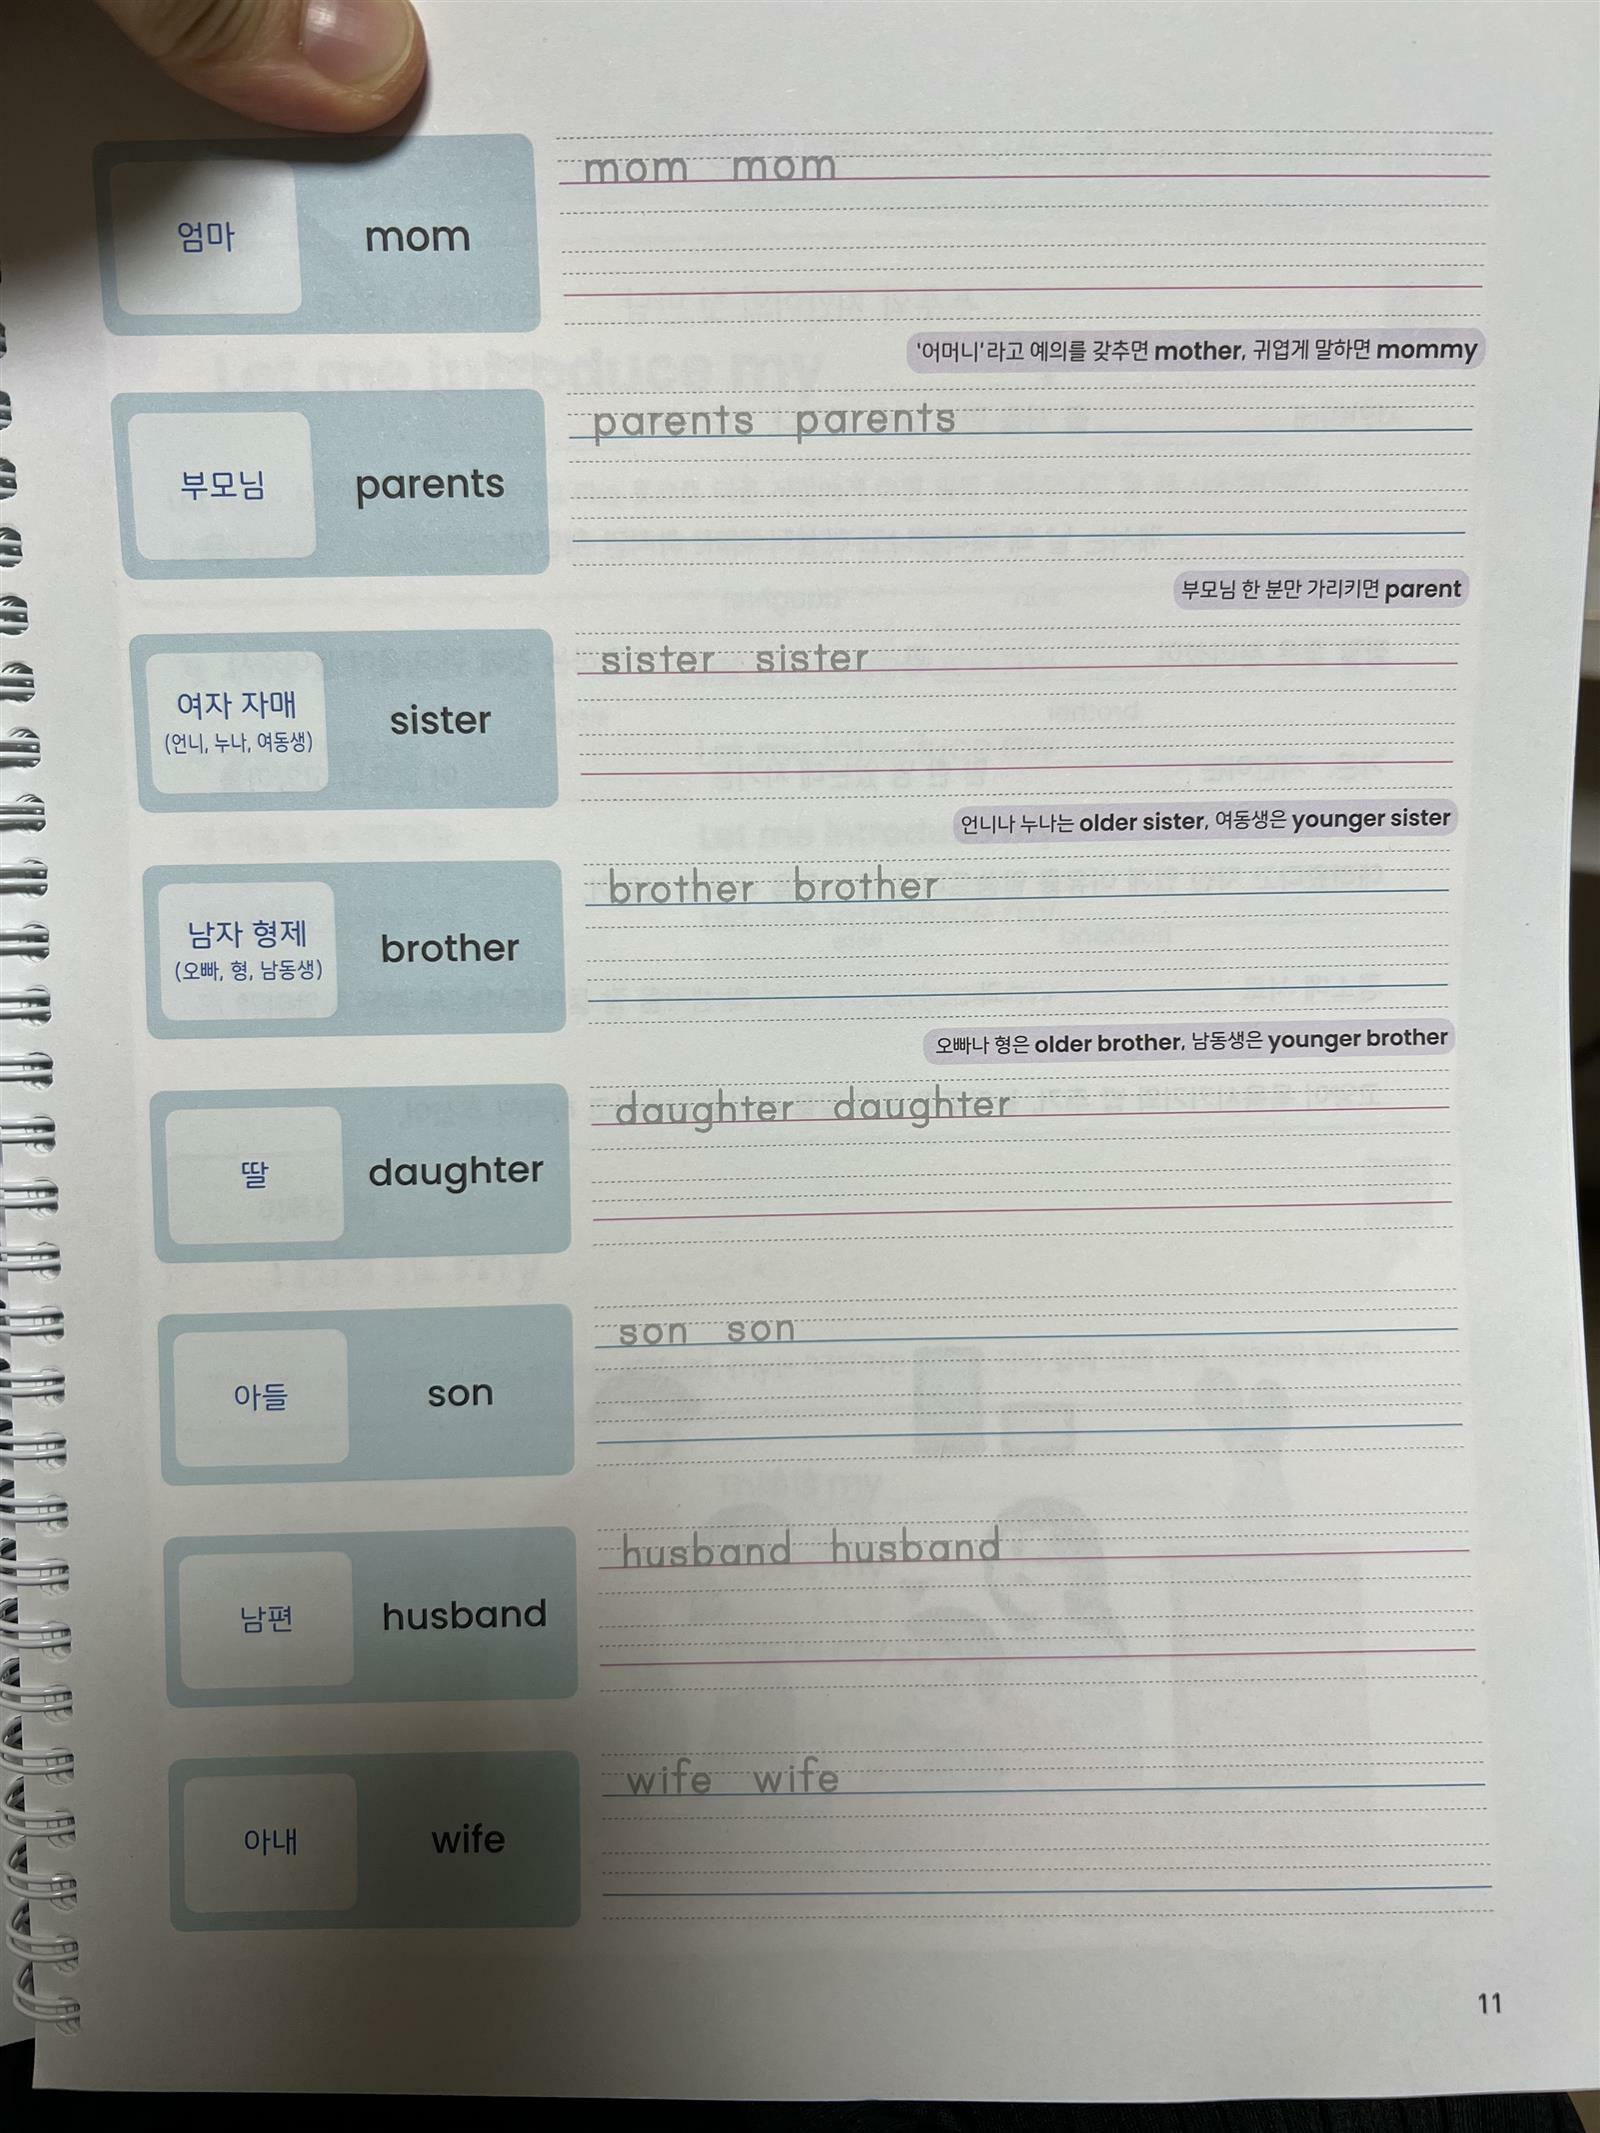 엄마 mom
mom mom
'어머니'라고 예의를 갖추면 mother, 귀엽게 말하면 mommy
부모님 parents
parents parents
부모님 한 분만 가리키면 parent
여자 자매
(언니, 누나, 여동생)
sister
sister sister
언니나 누나는 older sister, 여동생은 younger sister
남자 형제
(오빠, 형, 남동생)
brother
brother brother
오빠나 형은 older brother, 남동생은 younger brother
딸 daughter
daughter daughter
아들 son
son son
남편 husband
husband husband
아내 wife
wife wife
11